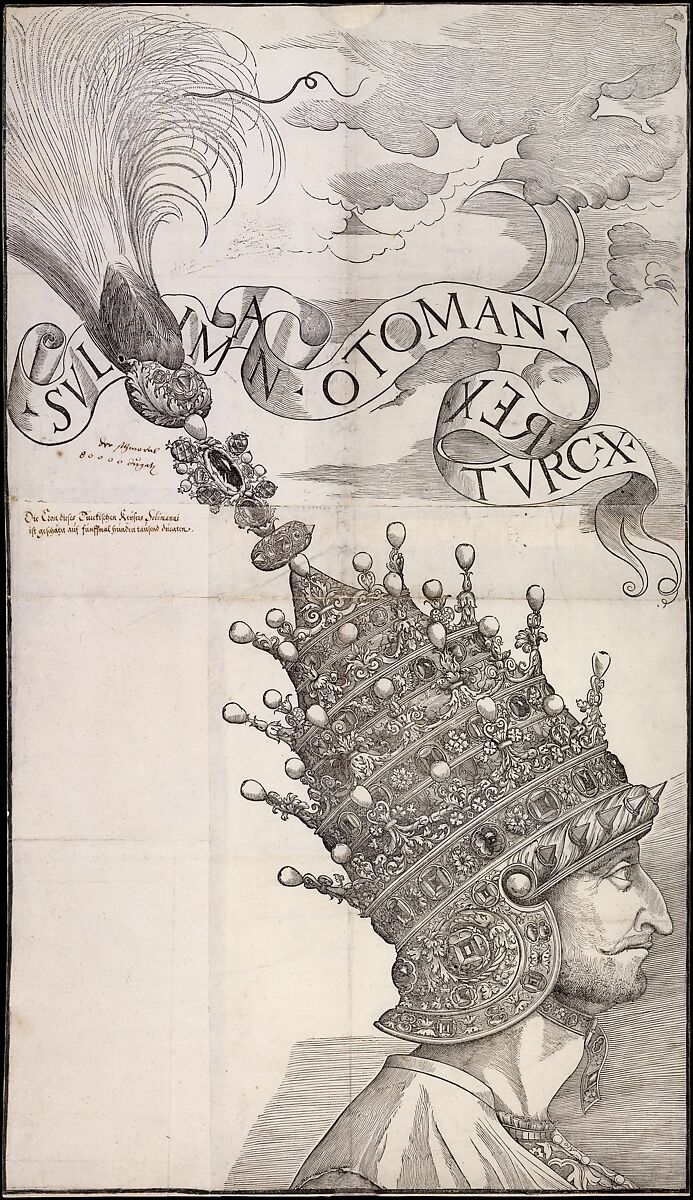 · SVLIMAN · OTOMAN ·
REX
TVRC · X ·
der
80000
Die Cron dieses Türckischen Keysers Solimanni
ist geschätzt auf fünffmal hundert tausend ducaten.